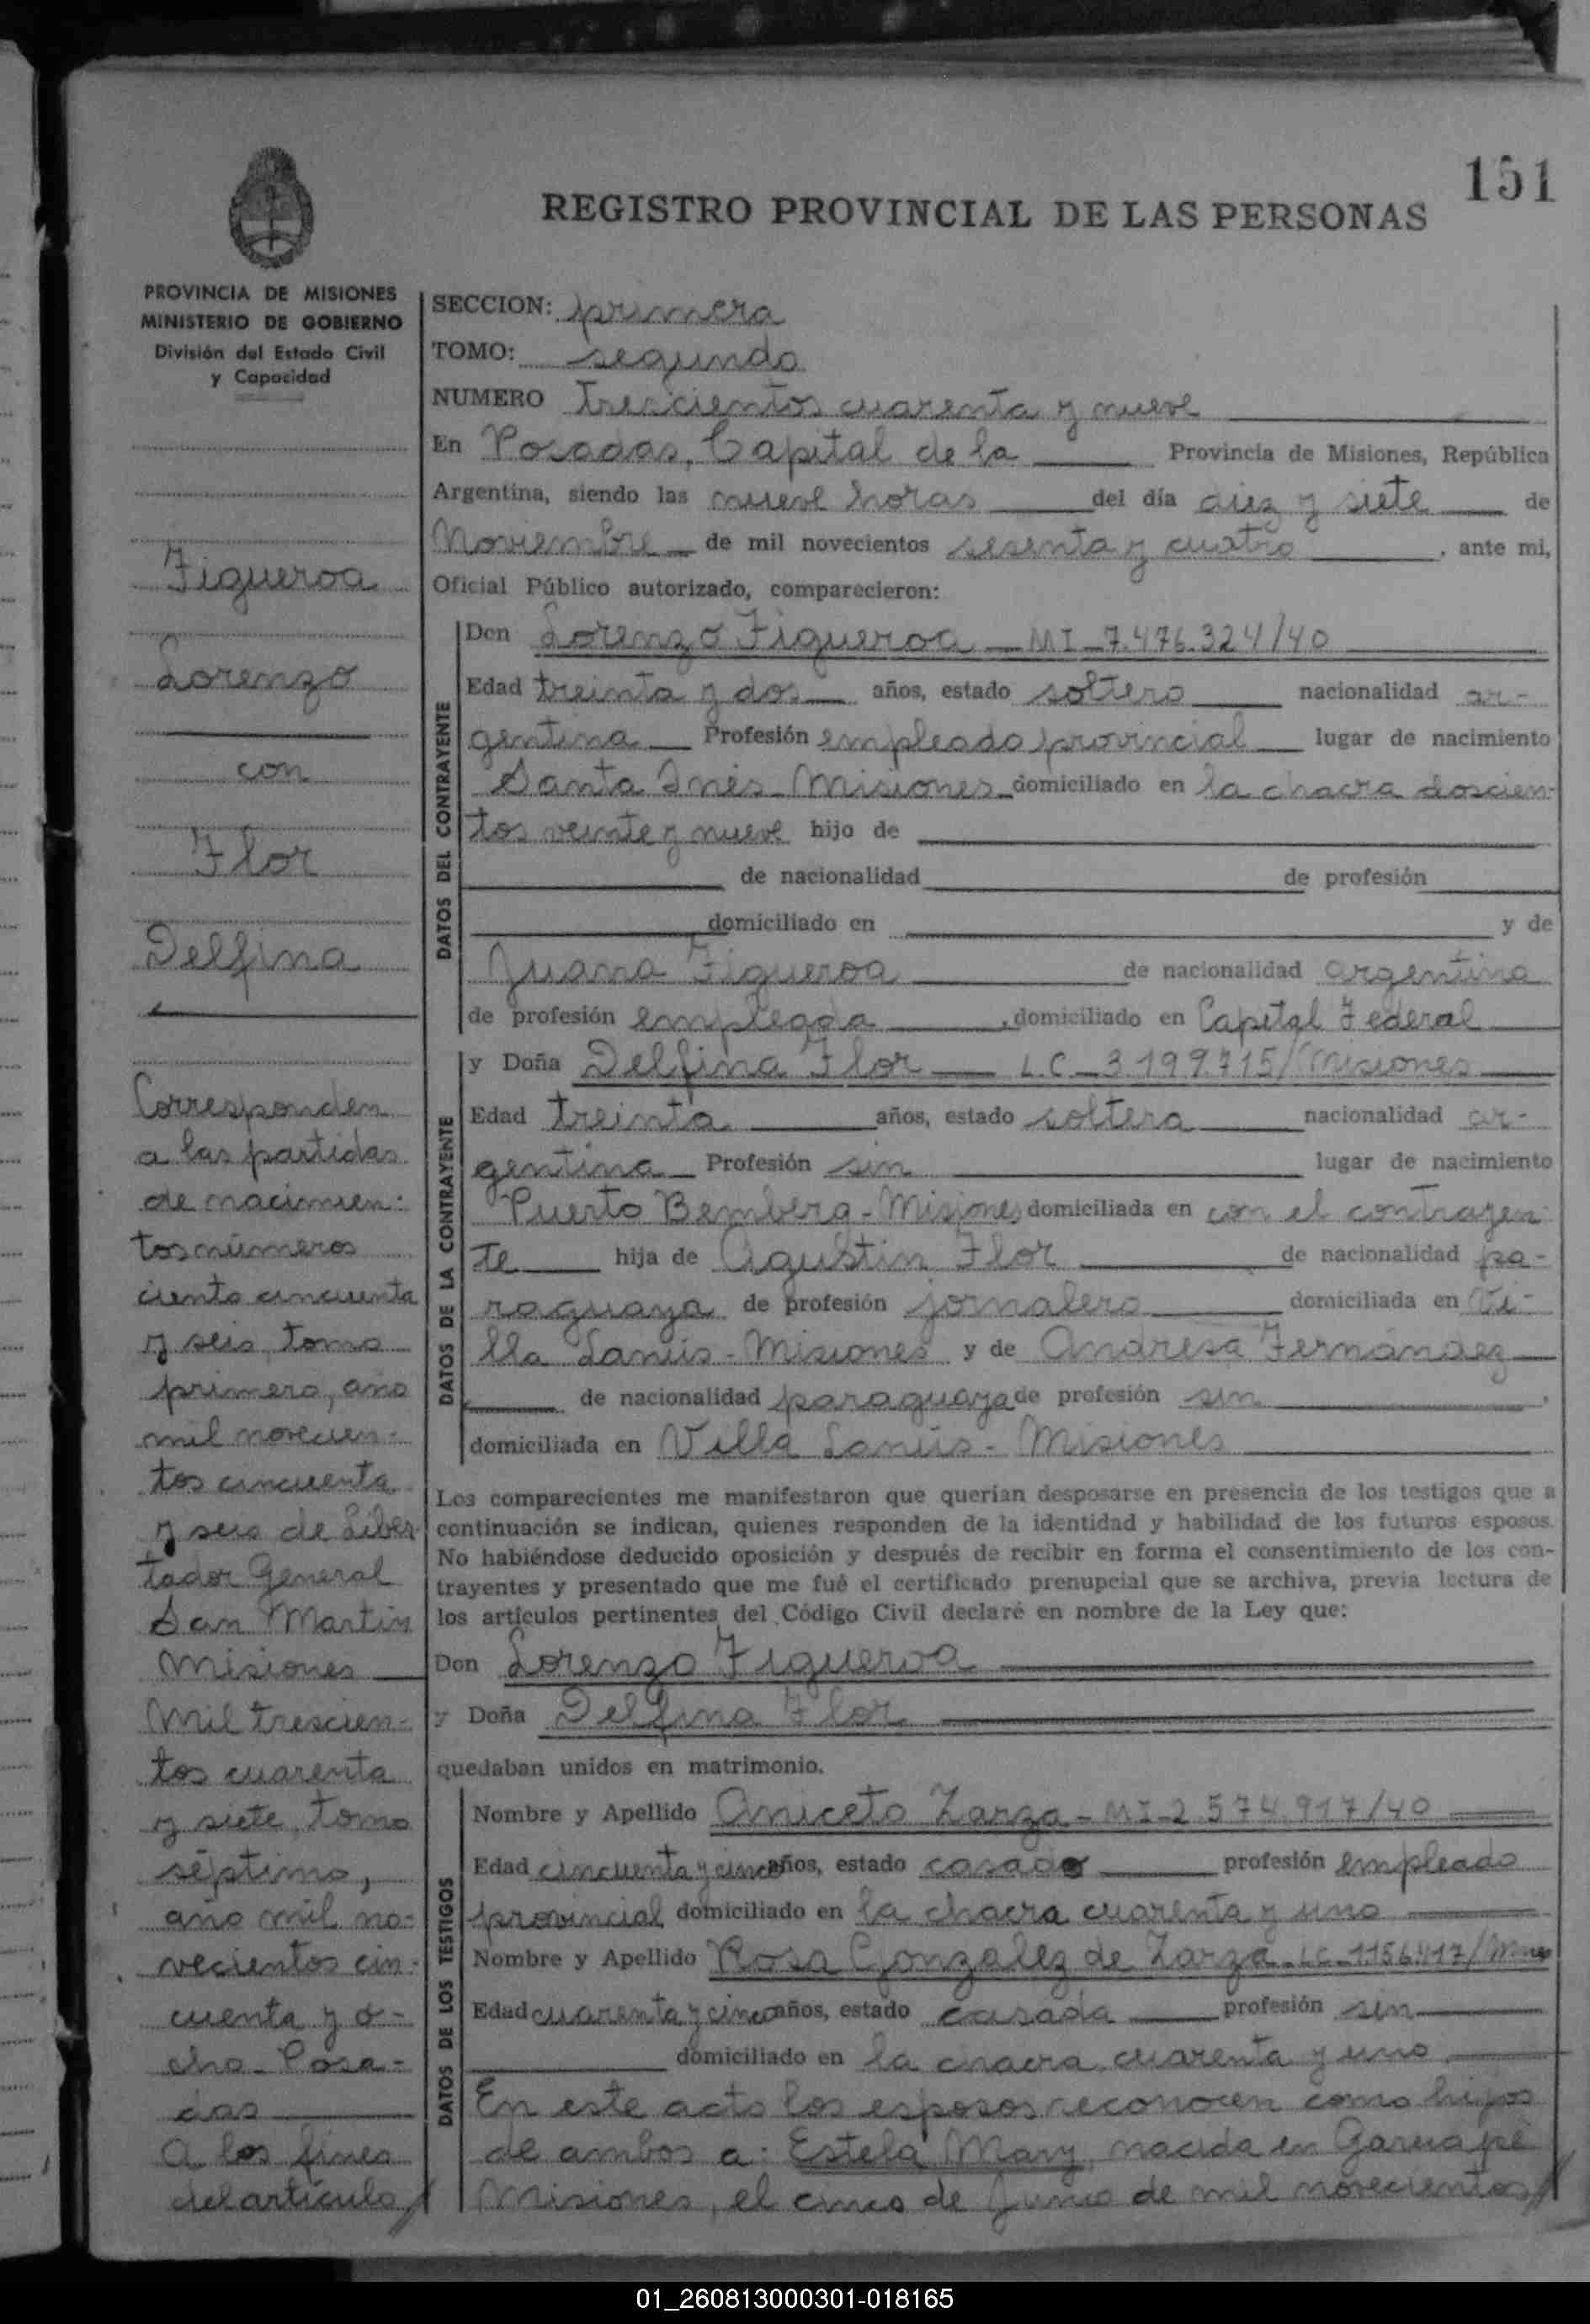 151
REGISTRO PROVINCIAL DE LAS PERSONAS
PROVINCIA DE MISIONES
MINISTERIO DE GOBIERNO
División del Estado Civil
y Capacidad
Figueroa
Lorenzo
con
Flor
Delfina
Corresponden
a las partidas
de nacimien-
tos números
ciento cincuenta
y seis, tomo
primero, año
mil novecien-
tos cincuenta
y seis de Liber
tador General
San Martin
Misiones
Mil trescien-
tos cuarenta
y siete, tomo
séptimo,
año mil no-
vecientos cin-
cuenta y o-
cho- Posa-
das
A los fines
del artículo//
SECCION: primera
TOMO: segundo
NUMERO Trescientos cuarenta y nueve
En Posadas, Capital de la Provincia de Misiones, República
Argentina, siendo las nueve horas del día diez y siete de
Noviembre de mil novecientos sesenta y cuatro, ante mi,
Oficial Público autorizado, comparecieron:
DATOS DEL CONTRAYENTE
Don Lorenzo Figueroa - MI - 7.476.324/40
Edad treinta y dos años, estado soltero nacionalidad ar-
gentina Profesión empleado provincial lugar de nacimiento
Santa Inés - Misiones domiciliado en la chacra doscien-
tos veinte y nueve hijo de
de nacionalidad de profesión
domiciliado en y de
Juana Figueroa de nacionalidad argentina
de profesión empleada, domiciliado en Capital Federal
DATOS DE LA CONTRAYENTE
y Doña Delfina Flor L.C - 3.199.715/Misiones
Edad treinta años, estado soltera nacionalidad ar-
gentina Profesión sin lugar de nacimiento
Puerto Bemberg - Misiones domiciliada en con el contrayen
te hija de Agustin Flor de nacionalidad pa-
raguaya de profesión jornalero domiciliada en Vi-
lla Lanús - Misiones y de Andresa Fernández
de nacionalidad paraguaya de profesión sin,
domiciliada en Villa Lanús - Misiones
Los comparecientes me manifestaron que querían desposarse en presencia de los testigos que a
continuación se indican, quienes responden de la identidad y habilidad de los futuros esposos.
No habiéndose deducido oposición y después de recibir en forma el consentimiento de los con-
trayentes y presentado que me fué el certificado prenupcial que se archiva, previa lectura de
los artículos pertinentes del Código Civil declaré en nombre de la Ley que:
Don Lorenzo Figueroa
y Doña Delfina Flor
quedaban unidos en matrimonio.
DATOS DE LOS TESTIGOS
Nombre y Apellido Aniceto Zarza - MI - 2.574.917/40
Edad cincuenta y cinco años, estado casado profesión empleado
provincial domiciliado en la chacra cuarenta y uno
Nombre y Apellido Rosa Gonzalez de Zarza - LC - 1.156.417/Mnes
Edad cuarenta y cinco años, estado casada profesión sin
domiciliado en la chacra cuarenta y uno
En este acto los esposos reconocen como hijos
de ambos a: Estela Mary, nacida en Garuapé
Misiones, el cinco de Junio de mil novecientos//
01_260813000301-018165